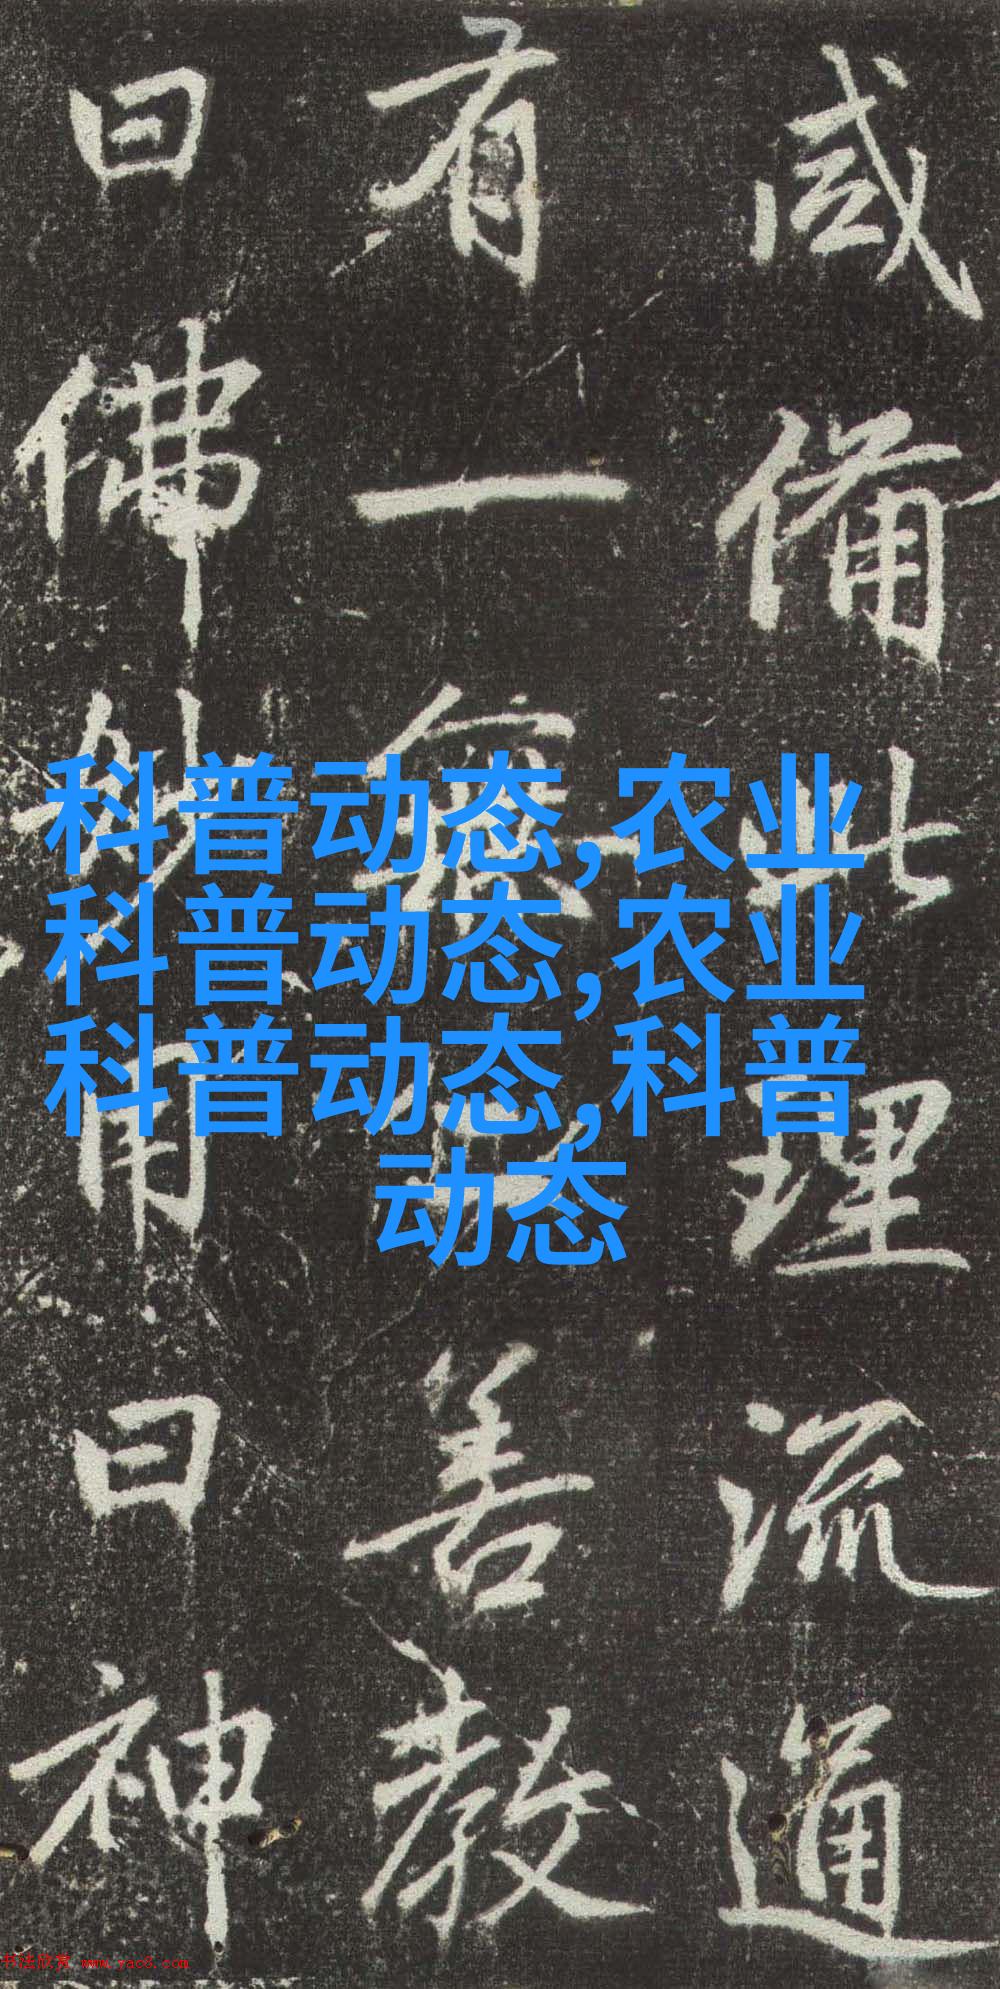 咸備此理流通
有一善教
曰佛妙用曰神
科普动态,农业
科普动态,农业
科普动态,科普
动态
书法欣赏 www.yac8.com